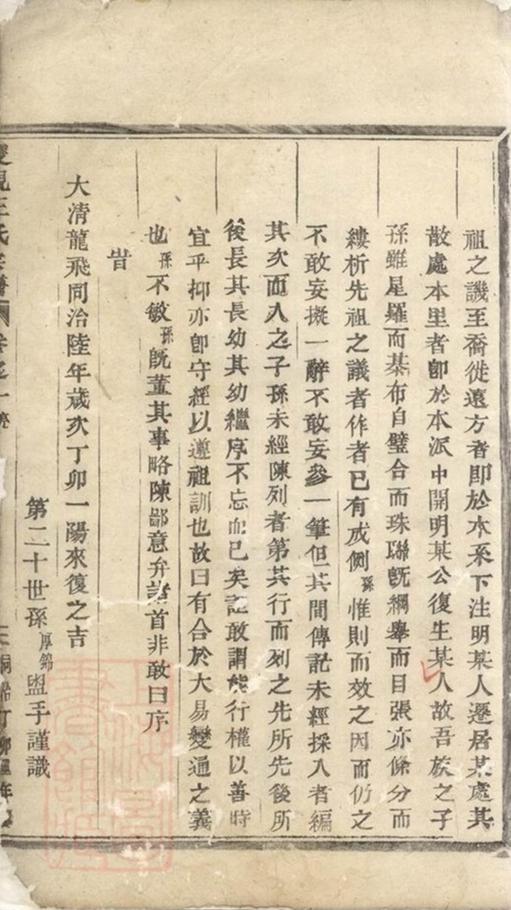 祖之譏至喬徙遠方者即於本系下注明某人遷居某處其
散處本里者即於本派中開明某公復生某人故吾族之子
孫雖星羅而棊布自璧合而珠聯旣綱舉而目張亦條分而
縷析先祖之議者作者已有成側孫惟則而效之因而仍之
不敢妄擬一辭不敢妄參一筆但其間傳記未經採入者編
其次而入之子孫未經陳列者第其行而列之先所先後所
後長其長幼其幼繼序不忘而已矣詎敢謂能行權以善時
宜乎抑亦卽守經以遵祖訓也故曰有合於大易變通之義
也孫不敏孫旣董其事略陳鄙意弁諸首非敢曰序
旹
大清龍飛同治陸年歲次丁卯一陽來復之吉
第二十世孫厚錦盥手謹識
王氏宗譜 卷之一 同治丁卯重年